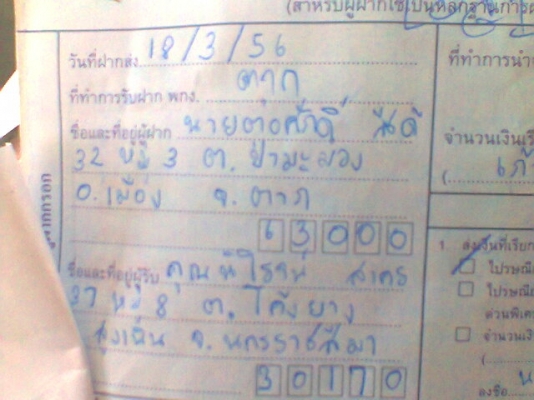 (สำหรับผู้ฝากใช้เป็นหลักฐานการ
วันที่ฝากส่ง 18/3/56
ที่ทำการรับฝาก พกง. ตาก
ชื่อและที่อยู่ผู้ฝาก นายต่อศักดิ์
32 หมู่ 3 ต. ป่ามะม่วง
อ. เมือง จ. ตาก
63000
ชื่อและที่อยู่ผู้รับ คุณ สาคร
37 หมู่ 8 ต. โค้งยาง
สูงเนิน จ. นครราชสีมา
30170
ที่ทำการนำ
จำนวนเงิน
(
1.
ไปรษณี
ไปรษณี
ด่วนพิเศ
จำนวนเงิ
(
ลงชื่อ